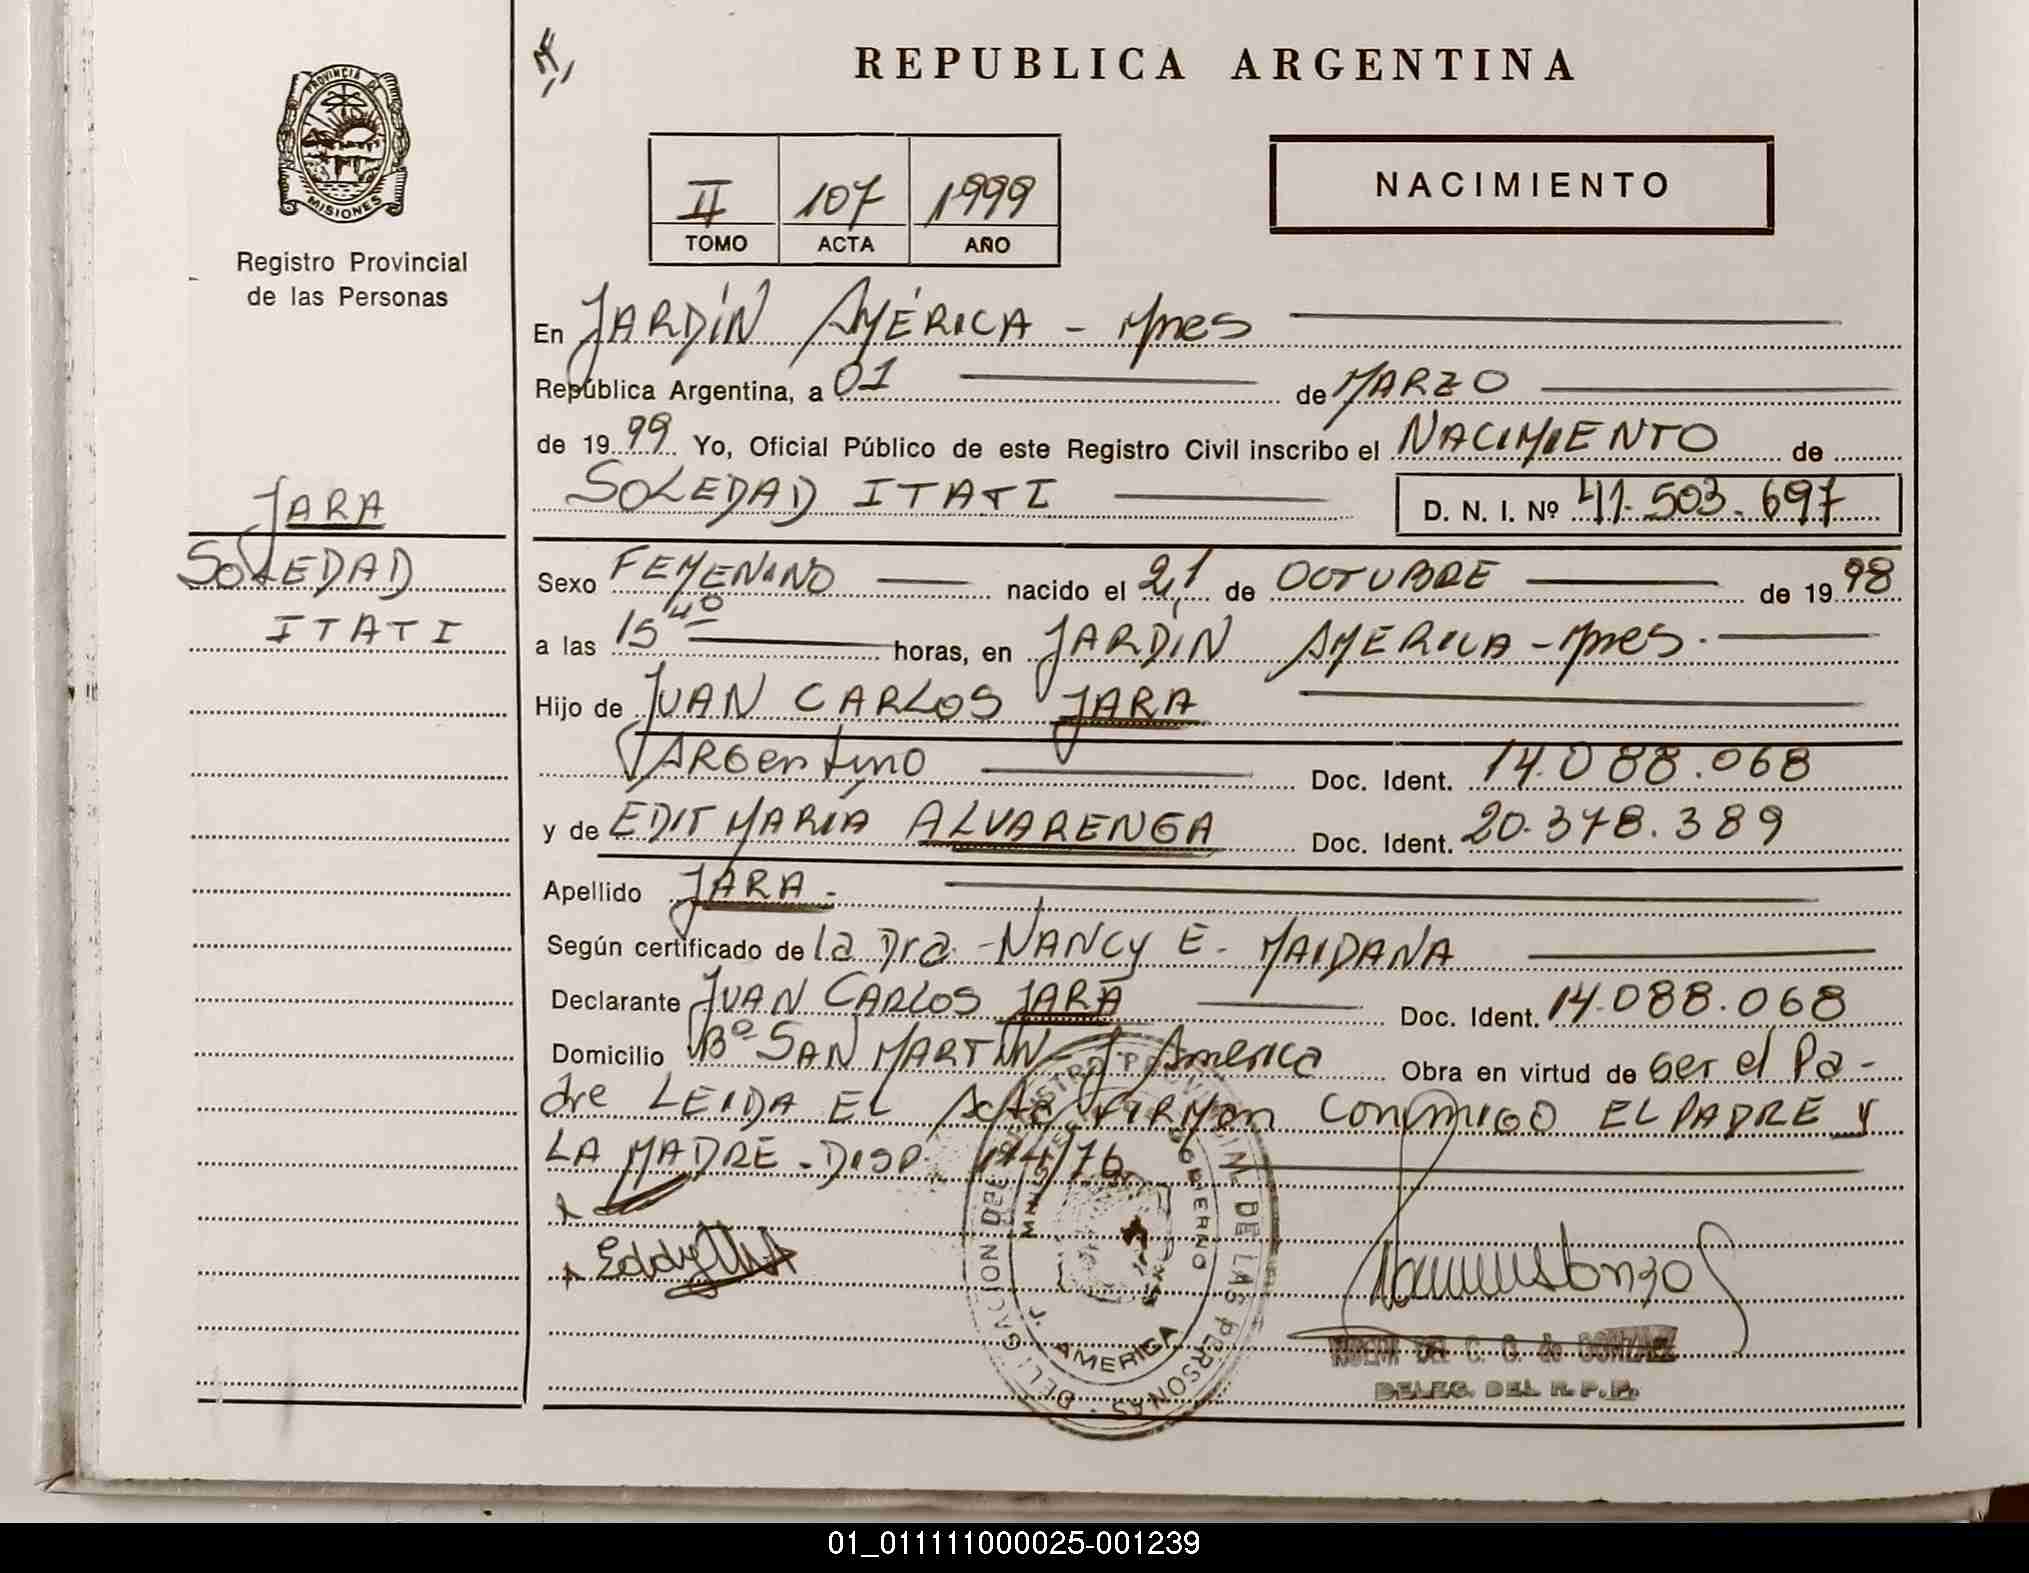 REPUBLICA ARGENTINA
PROVINCIA DE
MISIONES
Registro Provincial
de las Personas
II 107 1999
TOMO ACTA AÑO
NACIMIENTO
En JARDÍN AMÉRICA - Mnes
República Argentina, a 01 de MARZO
de 1999 Yo, Oficial Público de este Registro Civil inscribo el NACIMIENTO de
SOLEDAD ITATI D. N. I. Nº 41.503.697
JARA
SOLEDAD
ITATI
Sexo FEMENINO nacido el 21 de OCTUBRE de 1998
a las 15 40 horas, en JARDIN AMERICA - Mnes.
Hijo de JUAN CARLOS JARA
ARGentino Doc. Ident. 14.088.068
y de EDIT MARIA ALVARENGA Doc. Ident. 20.378.389
Apellido JARA -
Según certificado de la Dra - NANCY E. MAIDANA
Declarante JUAN CARLOS JARA Doc. Ident. 14.088.068
Domicilio Bº SAN MARTIN - J America Obra en virtud de ser el Pa-
dre LEIDA EL Acta FIRMan CONMIGO EL PADRE y
LA MADRE - DISP. 174/76
Eddy
DELEGACION DEL REGISTRO PROVINCIAL DE LAS PERSONAS
GOBIERNO
J. AMERICA
C. G. de GONZALEZ
DELEG. DEL R.P.P.
01_011111000025-001239